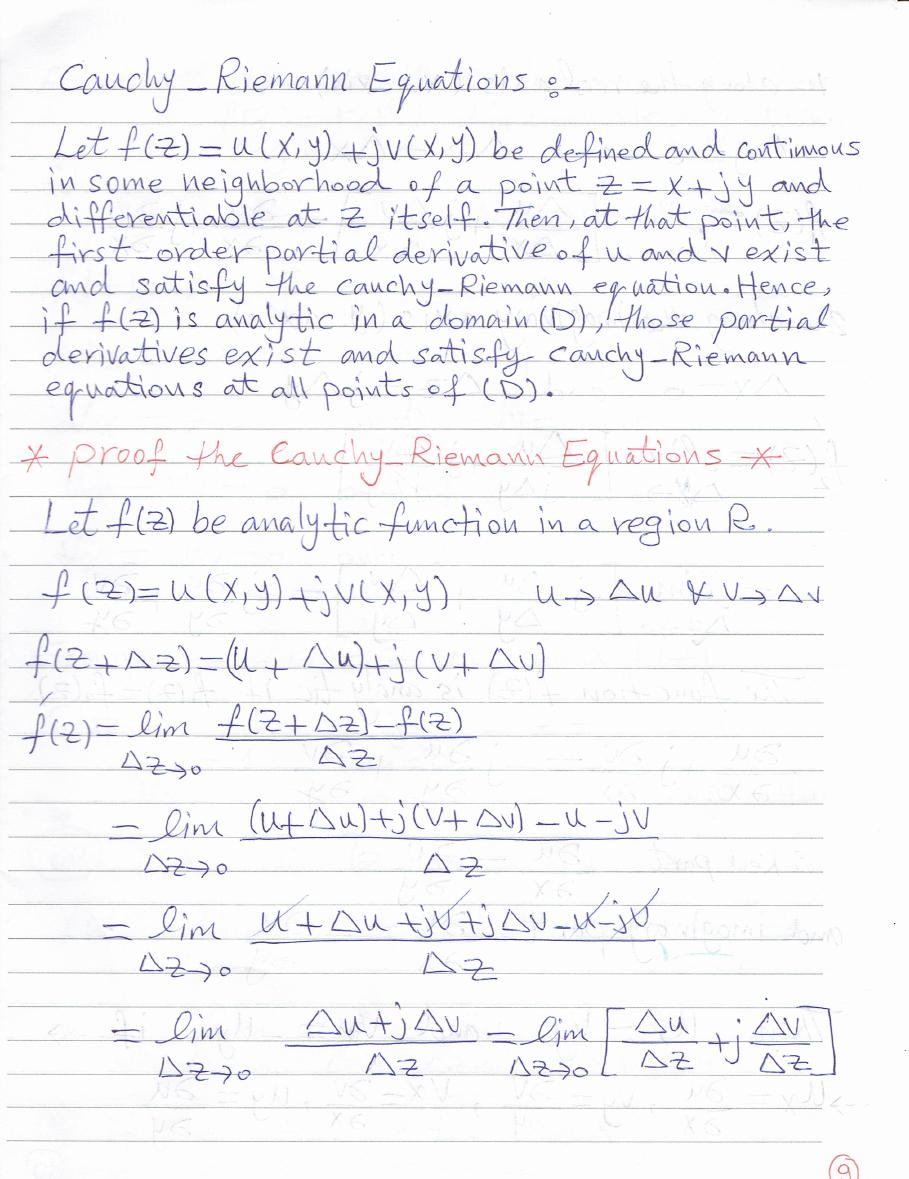 Cauchy_Riemann Equations :-
Let f(z) = u(x,y) + jv(x,y) be defined and continuous
in some neighborhood of a point z = x + jy and
differentiable at z itself. Then, at that point, the
first-order partial derivative of u and v exist
and satisfy the cauchy-Riemann equation. Hence,
if f(z) is analytic in a domain (D), those partial
derivatives exist and satisfy Cauchy-Riemann
equations at all points of (D).
* proof the Cauchy_Riemann Equations *
Let f(z) be analytic function in a region R.
f(z) = u(x,y) + jv(x,y) u → Δu & v → Δv
f(z + Δz) = (u + Δu) + j(v + Δv)
f′(z) = lim Δz→0 f(z + Δz) - f(z) / Δz
= lim Δz→0 (u + Δu) + j(v + Δv) - u - jv / Δz
= lim Δz→0 u + Δu + jv + jΔv - u - jv / Δz
= lim Δz→0 Δu + jΔv / Δz = lim Δz→0 [Δu/Δz + j Δv/Δz]
9